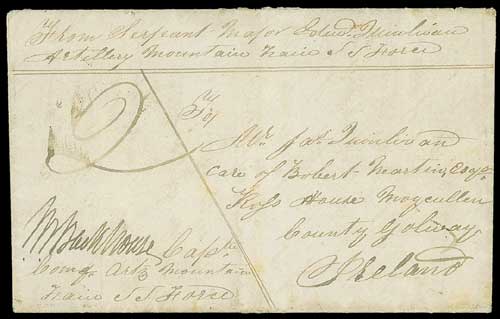 From Serjeant Major Edwd. Quinlivan
Artillery Mountain Train S S Force
2
To
Mr. Jas. Quinlivan
care of Robert Martin, Esqr.
Ross House Moycullen
County Galway
Ireland
Backhouse Captn.
Comg. Arty. Mountain
Train S S Force